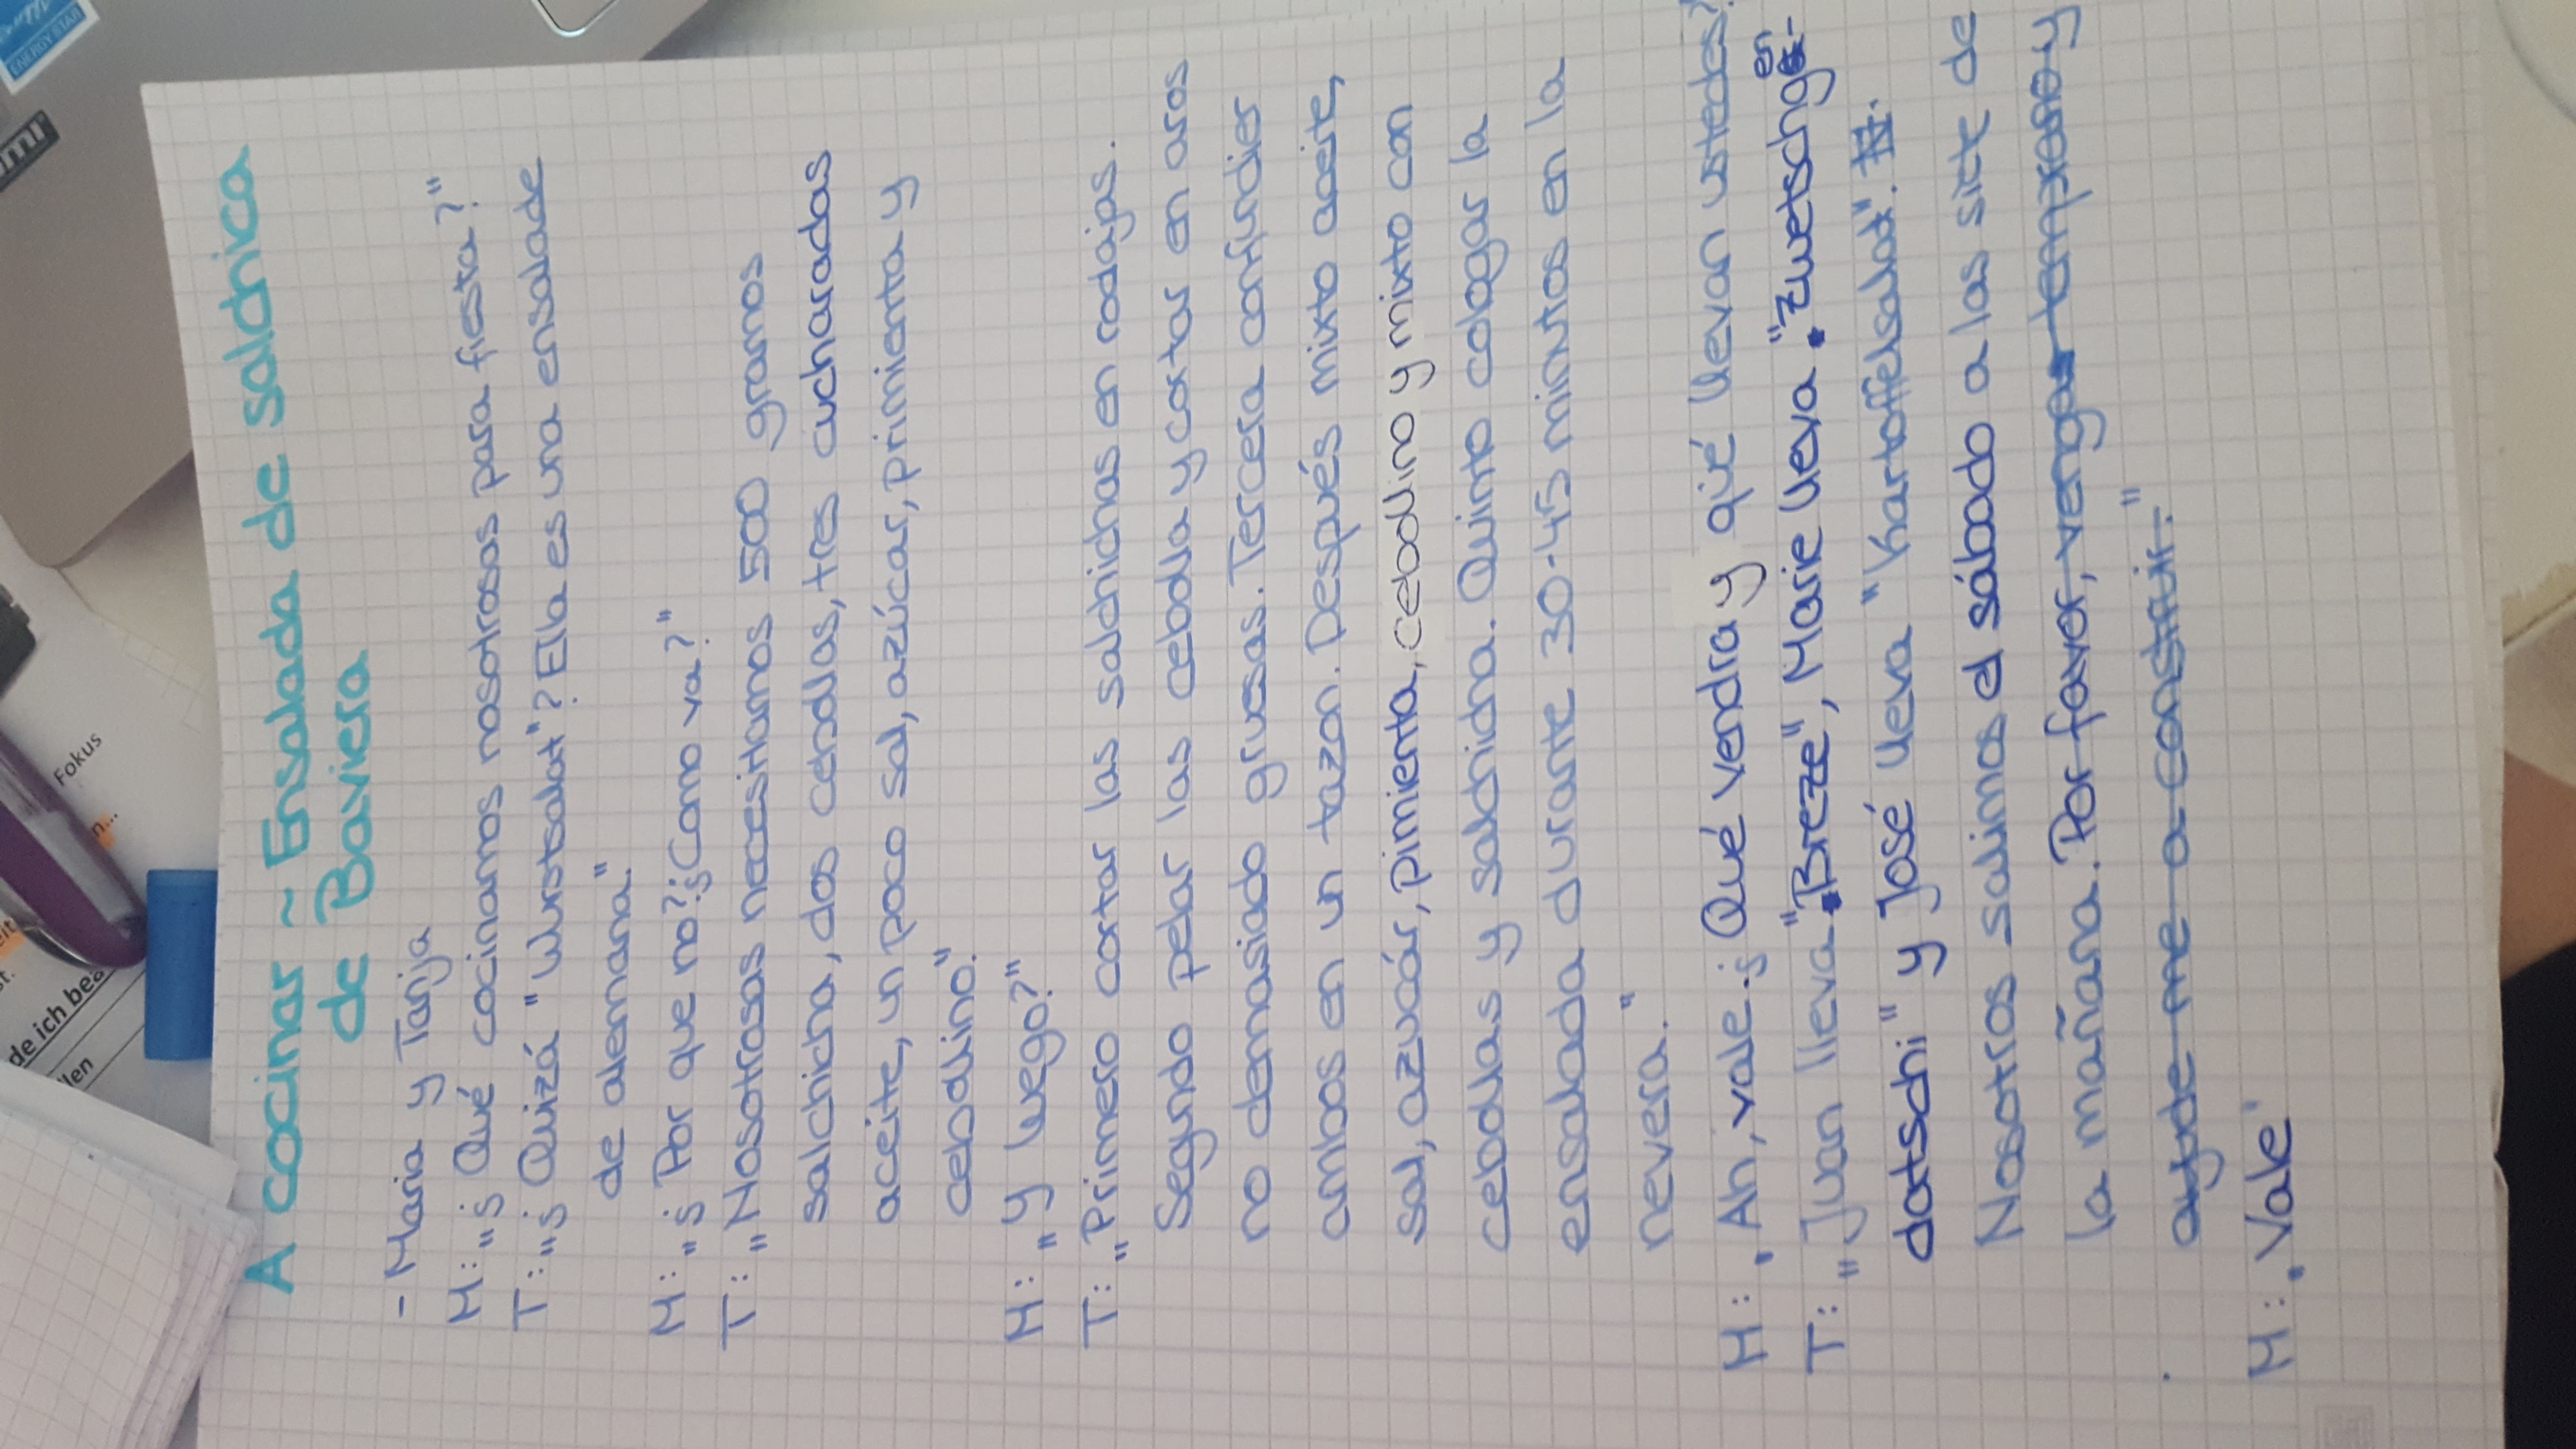 A cocinar ~ Ensalada de salchica
de Baviera
- Maria y Tanja
M: „¿ Qué cocinamos nosotrosas para fiesta?"
T: „¿ Quizá "Wurstsalat"? Ella es una ensalade
de alemana."
M: „¿ Por que no? ¿Como va?"
T: „Nosotrosas necesitamos 500 gramos
salchicha, dos cebollas, tres cucharadas
aceite, un poco sal, azúcar, primienta y
cebodlino."
M: „Y luego?"
T: „Primero cortar las salchichas en rodajas.
Segundo pelar las cebolla y cortar en aros
no demasiado gruesas. Tercera confundier
ambos en un tazon. Después mixto aceite,
sal, azucár, pimienta, cebodlino y mixto con
cebollas y salchicha. Quinto cologar la
ensalada durante 30-45 minutos en la
nevera."
M: „Ah, vale. ¿ Qué vendra y qué llevan ustedes?
T: „Juan lleva "Breze", Marie lleva "Zwetschgen-
datschi" y José lleva "Kartoffelsalat".
Nosotros salimos el sábado a las siete de
la mañana. Por favor, venga temprano y
ayude me a construir."
M: „Vale"
ENERGY STAR
Fokus
n...
de ich bea
llen
st.
eit
mi